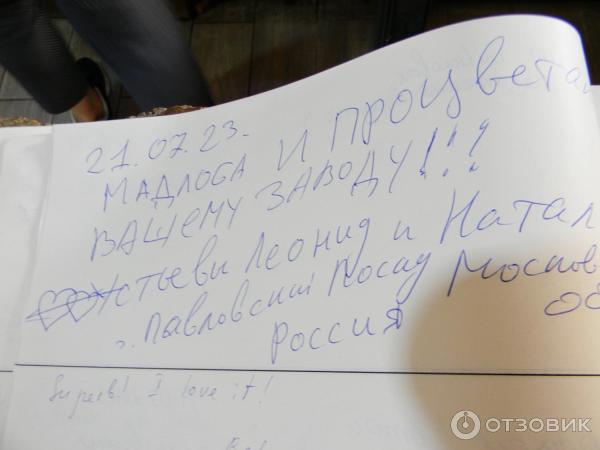 21.07.23.
МАДЛОБА И ПРОЦВЕТА
ВАШЕМУ ЗАВОДУ!!!
Устьевы Леонид и Натал
г. Павловский Посад Москов
Россия об
Superb! I love it!
ОТЗОВИК